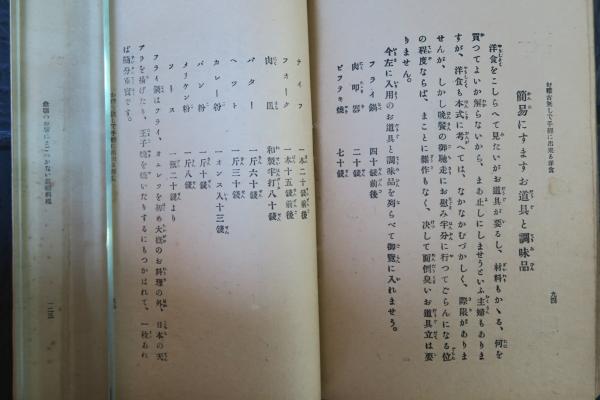 簡易にすますお道具と調味品
洋食をこしらへて見たいがお道具が要るし、材料もかゝる、何を
買つてよいか解らないから、まあ止しにしませうといふ主婦もありま
すが、洋食も本式に考へては、なかなかむづかしく、際限がありま
せんが、しかし晩餐の御馳走にお慰み半分に行つてごらんになる位
の程度ならば、まことに雑作もなく、決して面倒臭いお道具立は要
りません。
今左に入用のお道具と調味品を列らべて御覧に入れませう。
フライ鍋 四十銭前後
肉叩器 二十銭
ビフテキ焼 七十銭
九四
ナイフ 一本二十銭前後
フオーク 一本十五銭前後
肉皿 和製半打八十銭
バター 一斤六十銭
ヘツト 一斤三十銭
カレー粉 一オンス入十三銭
パン粉 一斤十銭
メリケン粉 一斤八銭
ソース 一瓶二十銭より
フライ鍋はフライ、オムレツを初め大抵のお料理の外、日本の天
プラを揚げたり、玉子焼を焼いたりするにもつかはれて、一枚あれ
ば随分重宝です。